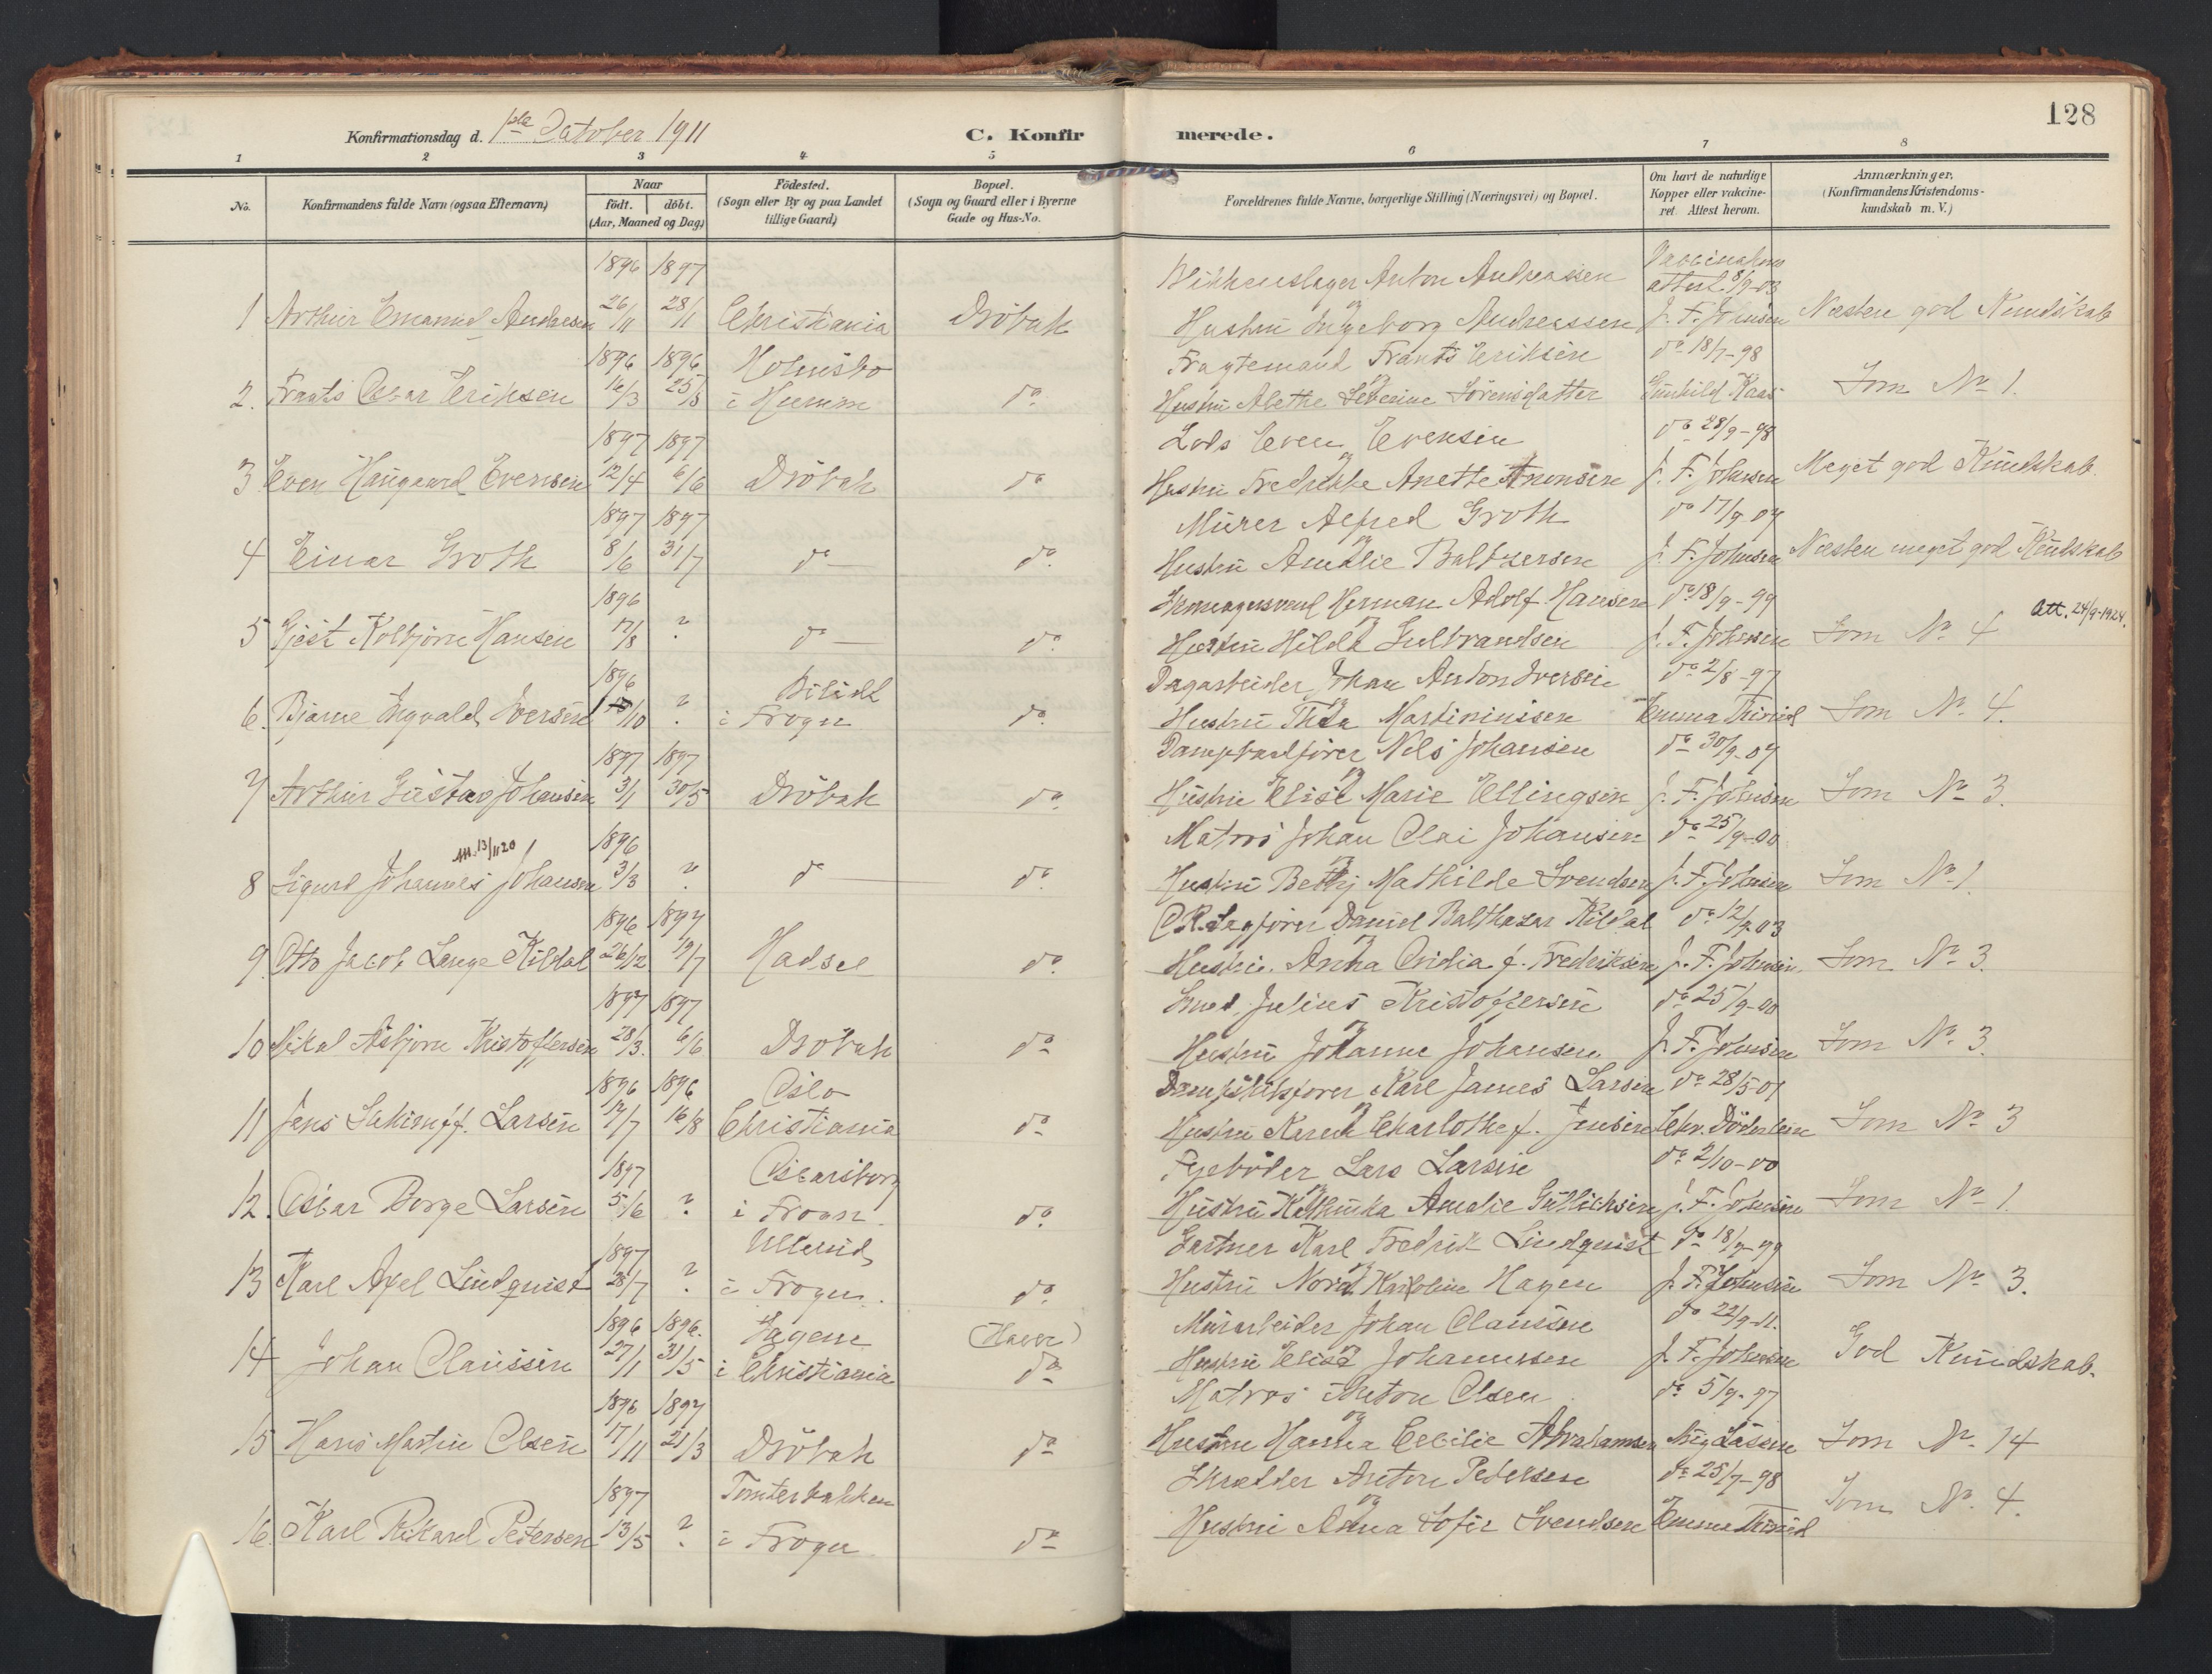 128
Konfirmationsdag d. 1ste October 1911
C. Konfirmerede.
1 2 3 4 5 6 7 8
No.
Konfirmandens fulde Navn (ogsaa Efternavn)
Naar
födt. döbt.
(Aar, Maaned og Dag)
Födested.
(Sogn eller By og paa Landet
tillige Gaard)
Bopæl.
(Sogn og Gaard eller i Byerne
Gade og Hus-No.
Forældrenes fulde Navne, borgerlige Stilling (Næringsvei) og Bopæl.
Om havt de naturlige
Kopper eller vakcine-
ret. Attest herom.
Anmærkninger.
(Konfirmandens Kristendoms-
kundskab m. V.)
1896 1897 Blikkenslager Anton Andreassen
attest 8/9-03
1 Arthur Emanuel Andresen 26/11 28/1 Christiania Dröbak og Hustru Ingeborg Andreassen J. F. Johnsen Næsten god Kundskab
1896 1896 Holmsbo Fragtemand Frants Eriksen do 18/7-98
2. Frants Oskar Eriksen 16/3 25/5 i Hurum do og Hustru Alethe Severine Sörensdatter Gunhild Som No 1.
1897 1897 Lods Even Evensen do 28/9-98
3. Even Haugaard Evensen 12/4 6/6 Dröbak do og Hustru Fredrikke Anette Aronsen J. F. Johnsen Meget god Kundskab.
1897 1897 Murer Alfred Groth do 17/9-07
4 Einar Groth 8/6 31/7 do do og Hustru Amalie Baltzersen J. F. Johnsen Næsten meget god Kundskab
1896 Skomagersvend Herman Adolf Hansen do 18/9-99 Att. 24/9-1924.
5 Gjest Kolbjörn Hansen 17/8 ? do do og Hustru Hilda Gulbrandsen J. F. Johnsen Som No 4
1896 Dagarbeider Johan Anton Iversen do 2/8-97
6. Bjarne Ingvald Iversen /10 ? i Frogn do og Hustru Thea Martiniussen Emma Som No 4.
1897 1897 Nils Johansen do 30/9-07
7 Arthur Gustav Johansen 3/1 30/5 Dröbak do og Hustru Elise Marie Ellingsen J. F. Johnsen Som No 3.
13/11 20
1896 Matros Johan Olai Johansen do 25/9-00
8 Sigurd Johannes Johansen 3/3 ? do do og Hustru Betty Mathilde Svendsen J. F. Johnsen Som No 1.
1896 1897 O.R.Sagförer Daniel Balthazar Kildal do 12/9-03
9. Otto Jacob Lange Kildal 26/12 19/7 Hadsel do og Hustru Anna f. Fredriksen J. F. Johnsen Som No 3.
1897 1897 Smed Julius Kristoffersen do 25/9-00
10 Mikal Asbjörn Kristoffersen 28/3. 6/6 Dröbak do og Hustru Johanne Johansen J. F. Johnsen Som No 3.
1896 1896 Oslo Dampskibsförer Karl James Larsen do 28/5-01
11 Jens Larsen 17/7 16/8 Christiania do og Hustru Karen Charlothe f. Jensen Chr. Döderlein Som No 3
1897 Oscarsborg Fyrböder Lars Larsen do 2/10-00
12. Oskar Borge Larsen 5/6 ? i Frogn. do og Hustru Amalie Gulliksen J. F. Johnsen Som No 1.
1897 Ullerud Gartner Karl Fredrik Lindquist do 18/9-99
13 Karl Axel Lindquist 28/7 ? i Frogn. do og Hustru Nora Karoline Hagen J. F. Johnsen Som No 3.
1896 1896. Hagene (Haver) Murarbeider Johan Claussen do 22/9-11.
14 Johan Claussen 27/1 31/5 i Christiania do og Hustru Elise Johannessen J. F. Johnsen God Kundskab.
1896 1897 Matros Anton Olsen do 5/9-97
15 Hans Martin Olsen 17/11 21/3 Dröbak do og Hustru Hanna Cecilie Abrahamsen Som No 14
1897 Tomterbakken Skrædder Anton Pedersen do 25/7-98
16. Karl Rikard Petersen 13/5 ? i Frogn do og Hustru Anna Sofie Svendsen Emma Som No 4.